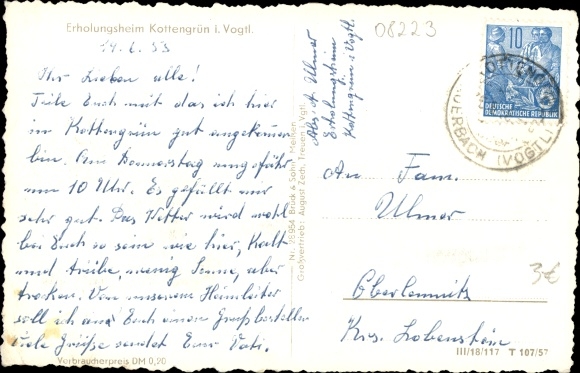 Erholungsheim Kottengrün i. Vogtl.
14. 6. 53
Ihr Lieben alle!
Teile Euch mit das ich hier
in Kottengrün gut angekommen
bin. Am Donnerstag ungefähr
um 10 Uhr. Es gefällt mir
sehr gut. Das Wetter wird wohl
bei Euch so sein wie hier, Kalt
und trübe, wenig Sonne, aber
troken. Von unserem Heimleiter
soll ich auch Euch einen Gruß bestellen
viele Grüße sendet Euer Vati.
Verbraucherpreis DM 0,20
Nr. 28954 Brück & Sohn, Meißen
Großvertrieb: August Zech, Treuen i. Vogtl.
Abs. A. Ulmer
Erholungsheim
Kottengrün i. Vogtl.
08223
10
DEUTSCHE
DEMOKRATISCHE REPUBLIK
AUERBACH (VOGTL)
An Fam.
Ulmer
Oberlemnitz
Krs. Lobenstein
3€
III/18/117 T 107/57